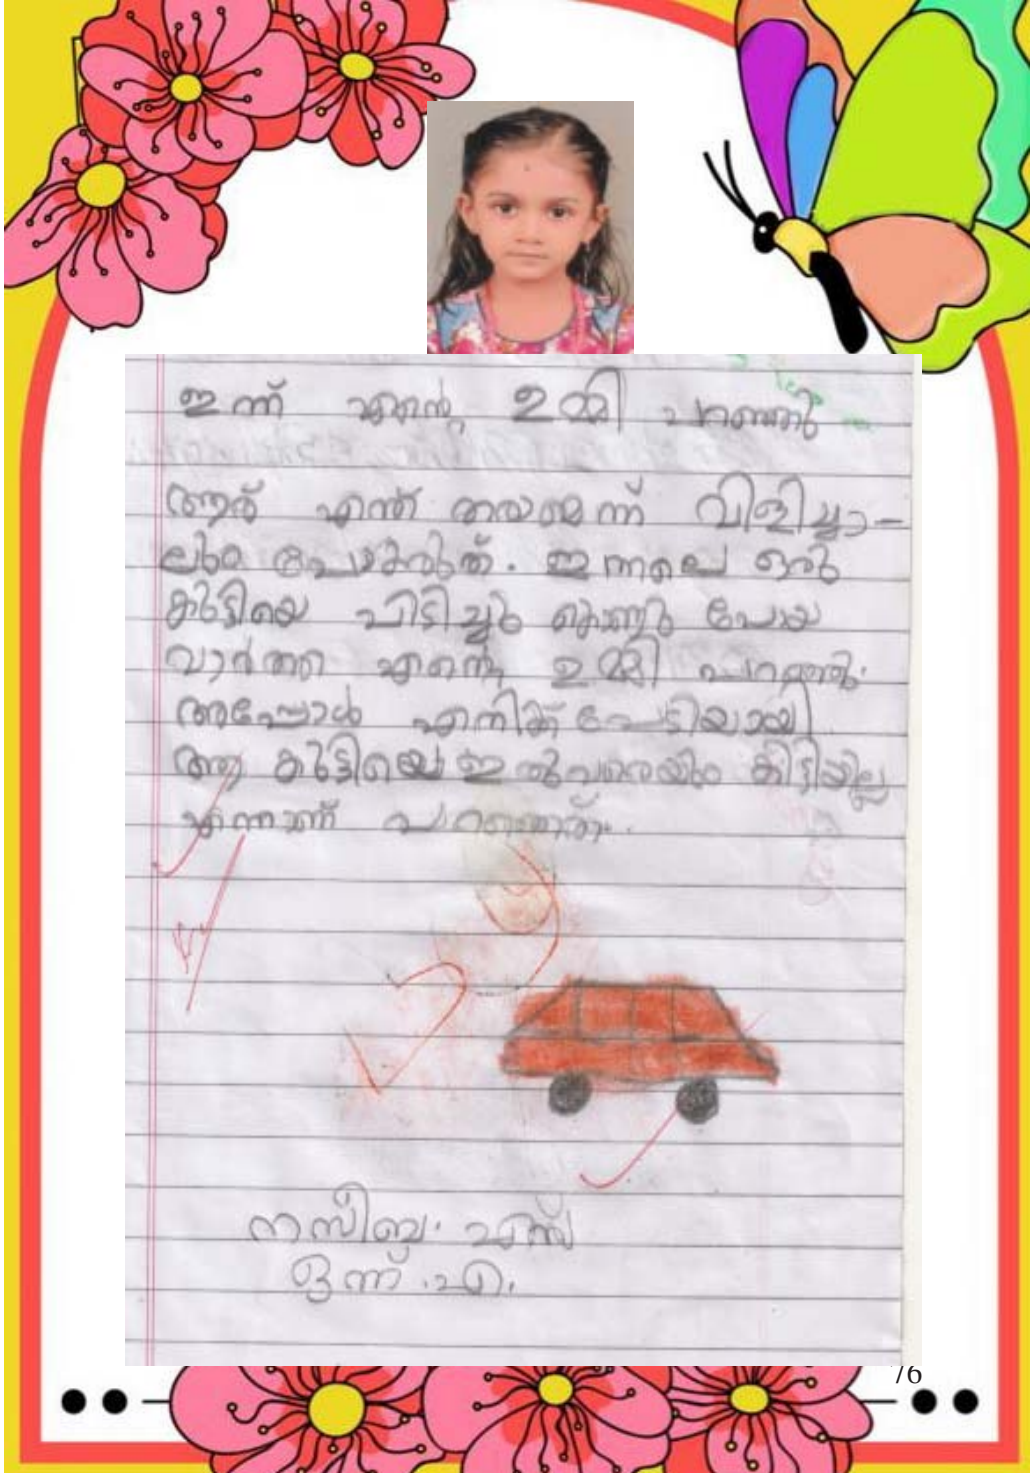 ഇന്ന് എന്റെ ഉമ്മി പറഞ്ഞു
ആര് എന്ത് തരാമെന്ന് വിളിച്ചാ-
ലും പോകരുത്. ഇന്നലെ ഒരു
കുട്ടിയെ പിടിച്ചു കൊണ്ടു പോയ
വാർത്ത എന്റെ ഉമ്മി പറഞ്ഞു.
അപ്പോൾ എനിക്ക് പേടിയായി
ആ കുട്ടിയെ ഇതുവരെയും കിട്ടിയില്ല
എന്നാണ് പറഞ്ഞത്.
നസീബ. എസ്
ഒന്ന്.എ.
76